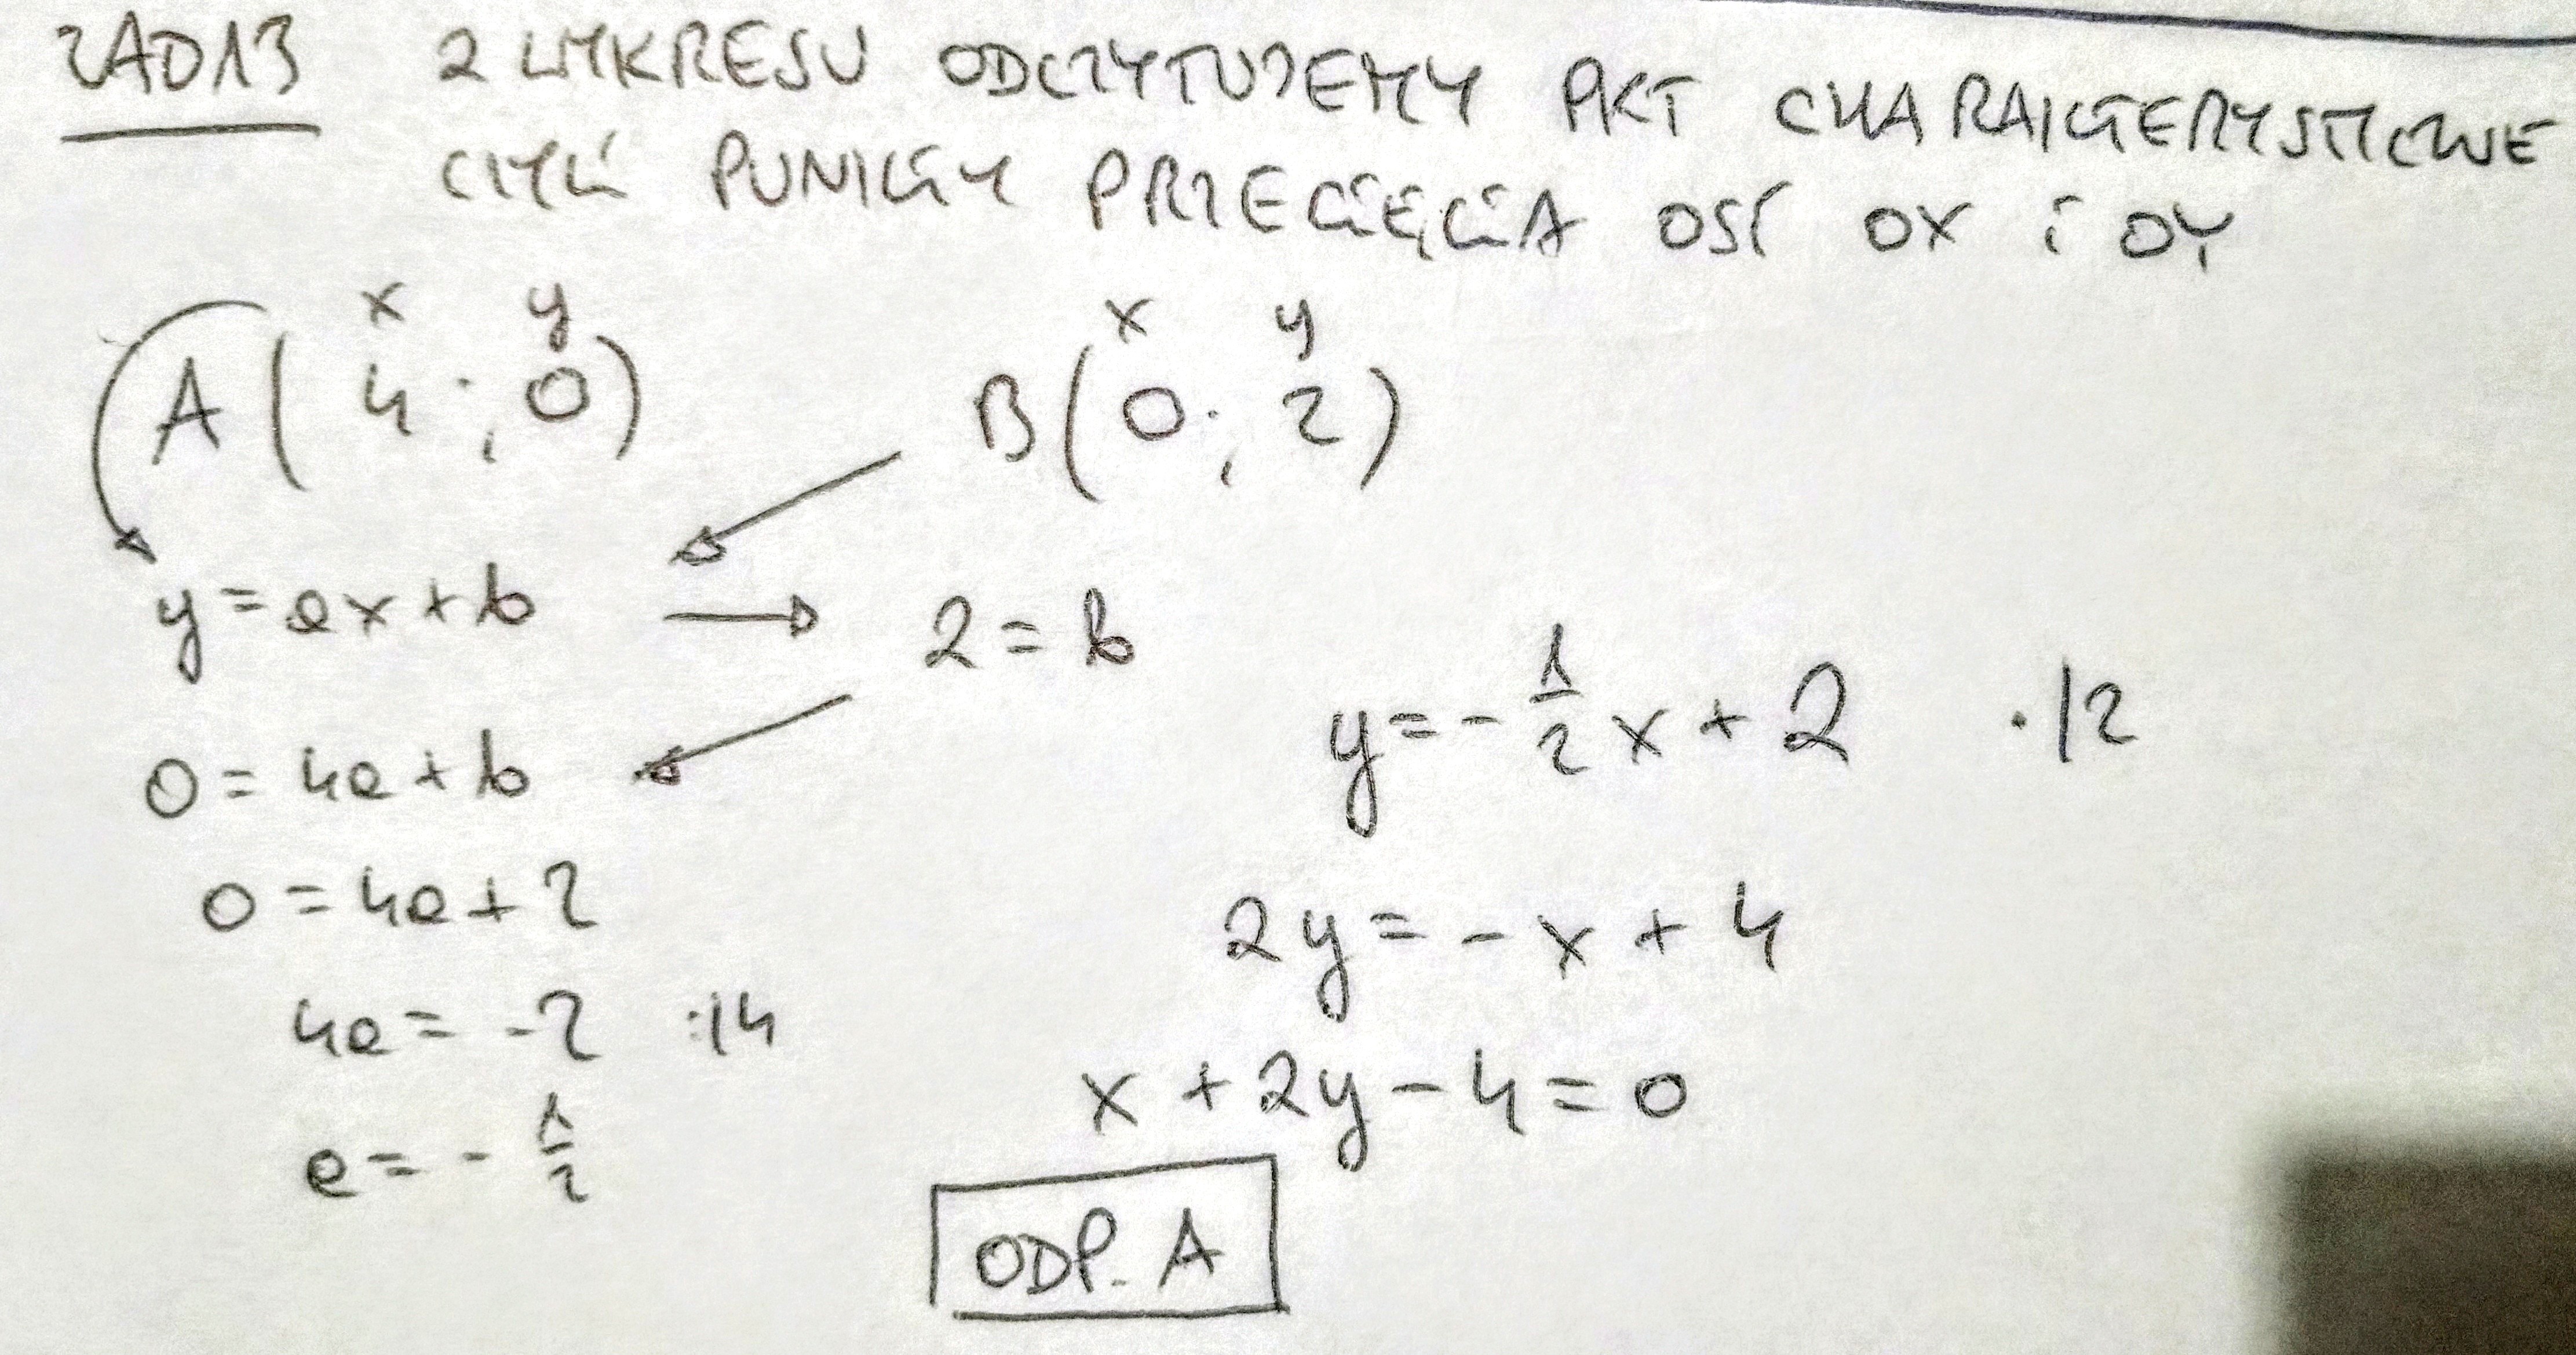 ZAD13 Z WYKRESU ODCZYTUJEMY PKT CHARAKTERYSTYCZNE
CZYLI PUNKTY PRZECIĘCIA OSI OX i OY
x y x y
A ( 4 ; 0 ) B ( 0 ; 2 )
y = ax + b → 2 = b
y = - 1/2 x + 2 ·|2
0 = 4a + b
0 = 4a + 2
2y = - x + 4
4a = -2 :|4
x + 2y - 4 = 0
a = - 1/2
ODP. A